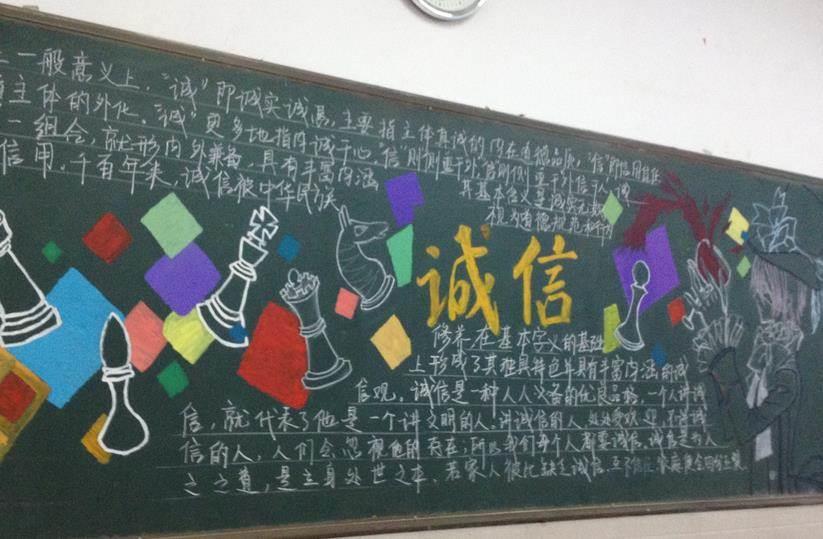 一般意义上，“诚”即诚实诚恳，主要指主体真诚的内在道德品质，“信”即信用
主体的外化。“诚”更多地指内诚于心，“信”则侧重于外
一组合，就形成内外兼备，具有丰富内涵
其基本含义是诚实无欺
信用。千百年来，诚信被中华民族
视为道德规范和
诚信
修养，在基本字义的基础
上形成了其独具特色并具有丰富内涵的诚
信观。诚信是一种人人必备的优良品格，一个人讲诚
信，就代表了他是一个讲文明的人。讲诚信的人，处处受欢迎，不讲诚
信的人，人们会忽视他的存在；所以我们每个人都要诚信。诚信是为人
之道，是立身处世之本。若家人彼此缺乏诚信